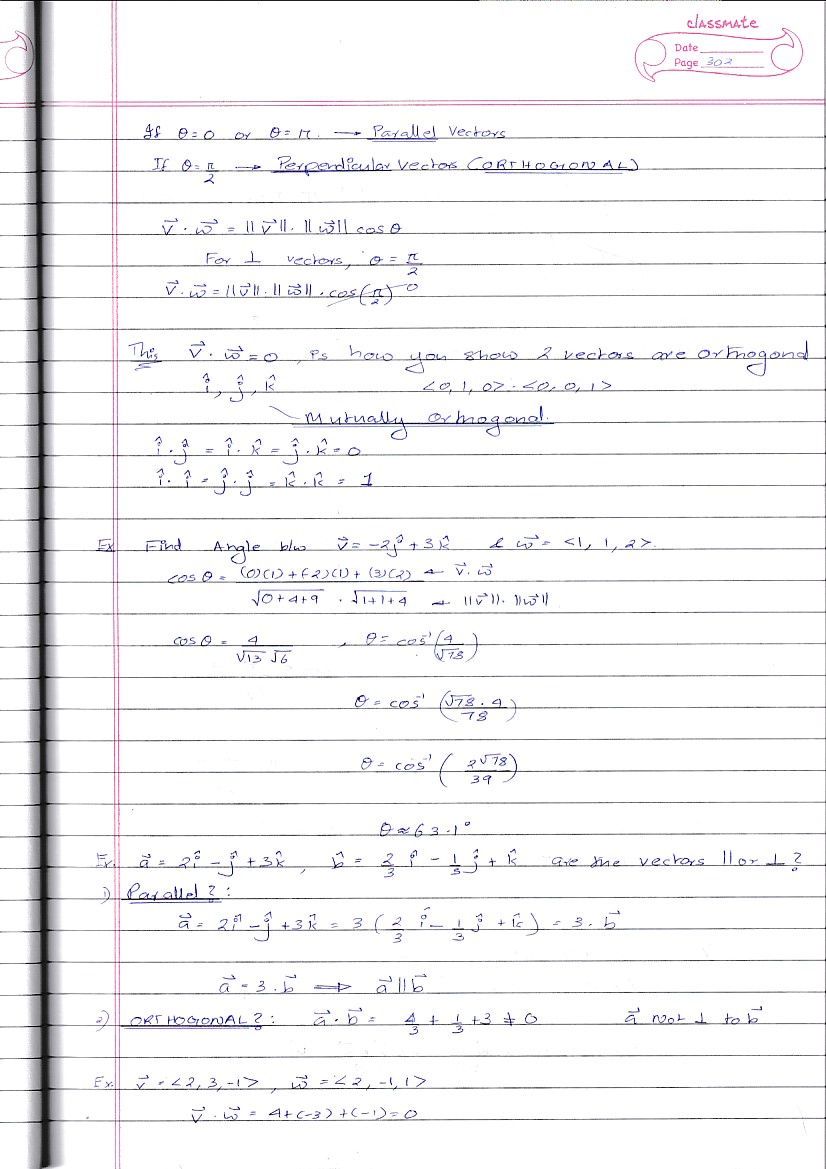 classmate
Date
Page 302
If θ=0 or θ=π. → Parallel Vectors
If θ=π/2 → Perpendicular Vectors (ORTHOGIONAL)
v⃗ · w⃗ = ||v⃗||. ||w⃗|| cos θ
For ⊥ vectors, θ = π/2
v⃗ · w⃗ = ||v⃗||. ||w⃗|| · cos(π/2) 0
This v⃗ · w⃗ = 0, is how you show 2 vectors are orthogonal
î, ĵ, k̂ <0, 1, 0> · <0, 0, 1>
Mutually orthogonal.
î · ĵ = î · k̂ = ĵ · k̂ = 0
î · î = ĵ · ĵ = k̂ · k̂ = 1
Ex Find Angle b/w v⃗ = -2ĵ + 3k̂ & w⃗ = <1, 1, 2>.
cos θ = (0)(1) + (-2)(1) + (3)(2) ← v⃗ · w⃗
√0+4+9 · √1+1+4 ← ||v⃗||. ||w⃗||
cos θ = 4/(√13 √6) , θ = cos⁻¹(4/√78)
θ = cos⁻¹(√78 · 4/78)
θ = cos⁻¹(2√78/39)
θ ≈ 63.1°
Ex. a⃗ = 2î - ĵ + 3k̂, b̂ = 2/3 î - 1/3 ĵ + k̂ are the vectors || or ⊥ ?
1) Parallel ? :
a⃗ = 2î - ĵ + 3k̂ = 3 (2/3 î - 1/3 ĵ + k̂) = 3 · b⃗
a⃗ = 3 · b⃗ ⟹ a⃗ || b⃗
2) ORTHOGIONAL ? : a⃗ · b⃗ = 4/3 + 1/3 + 3 ≠ 0 a⃗ not ⊥ to b⃗
Ex. v⃗ = <2, 3, -1>, w⃗ = <2, -1, 1>
v⃗ · w⃗ = 4+(-3)+(-1)=0